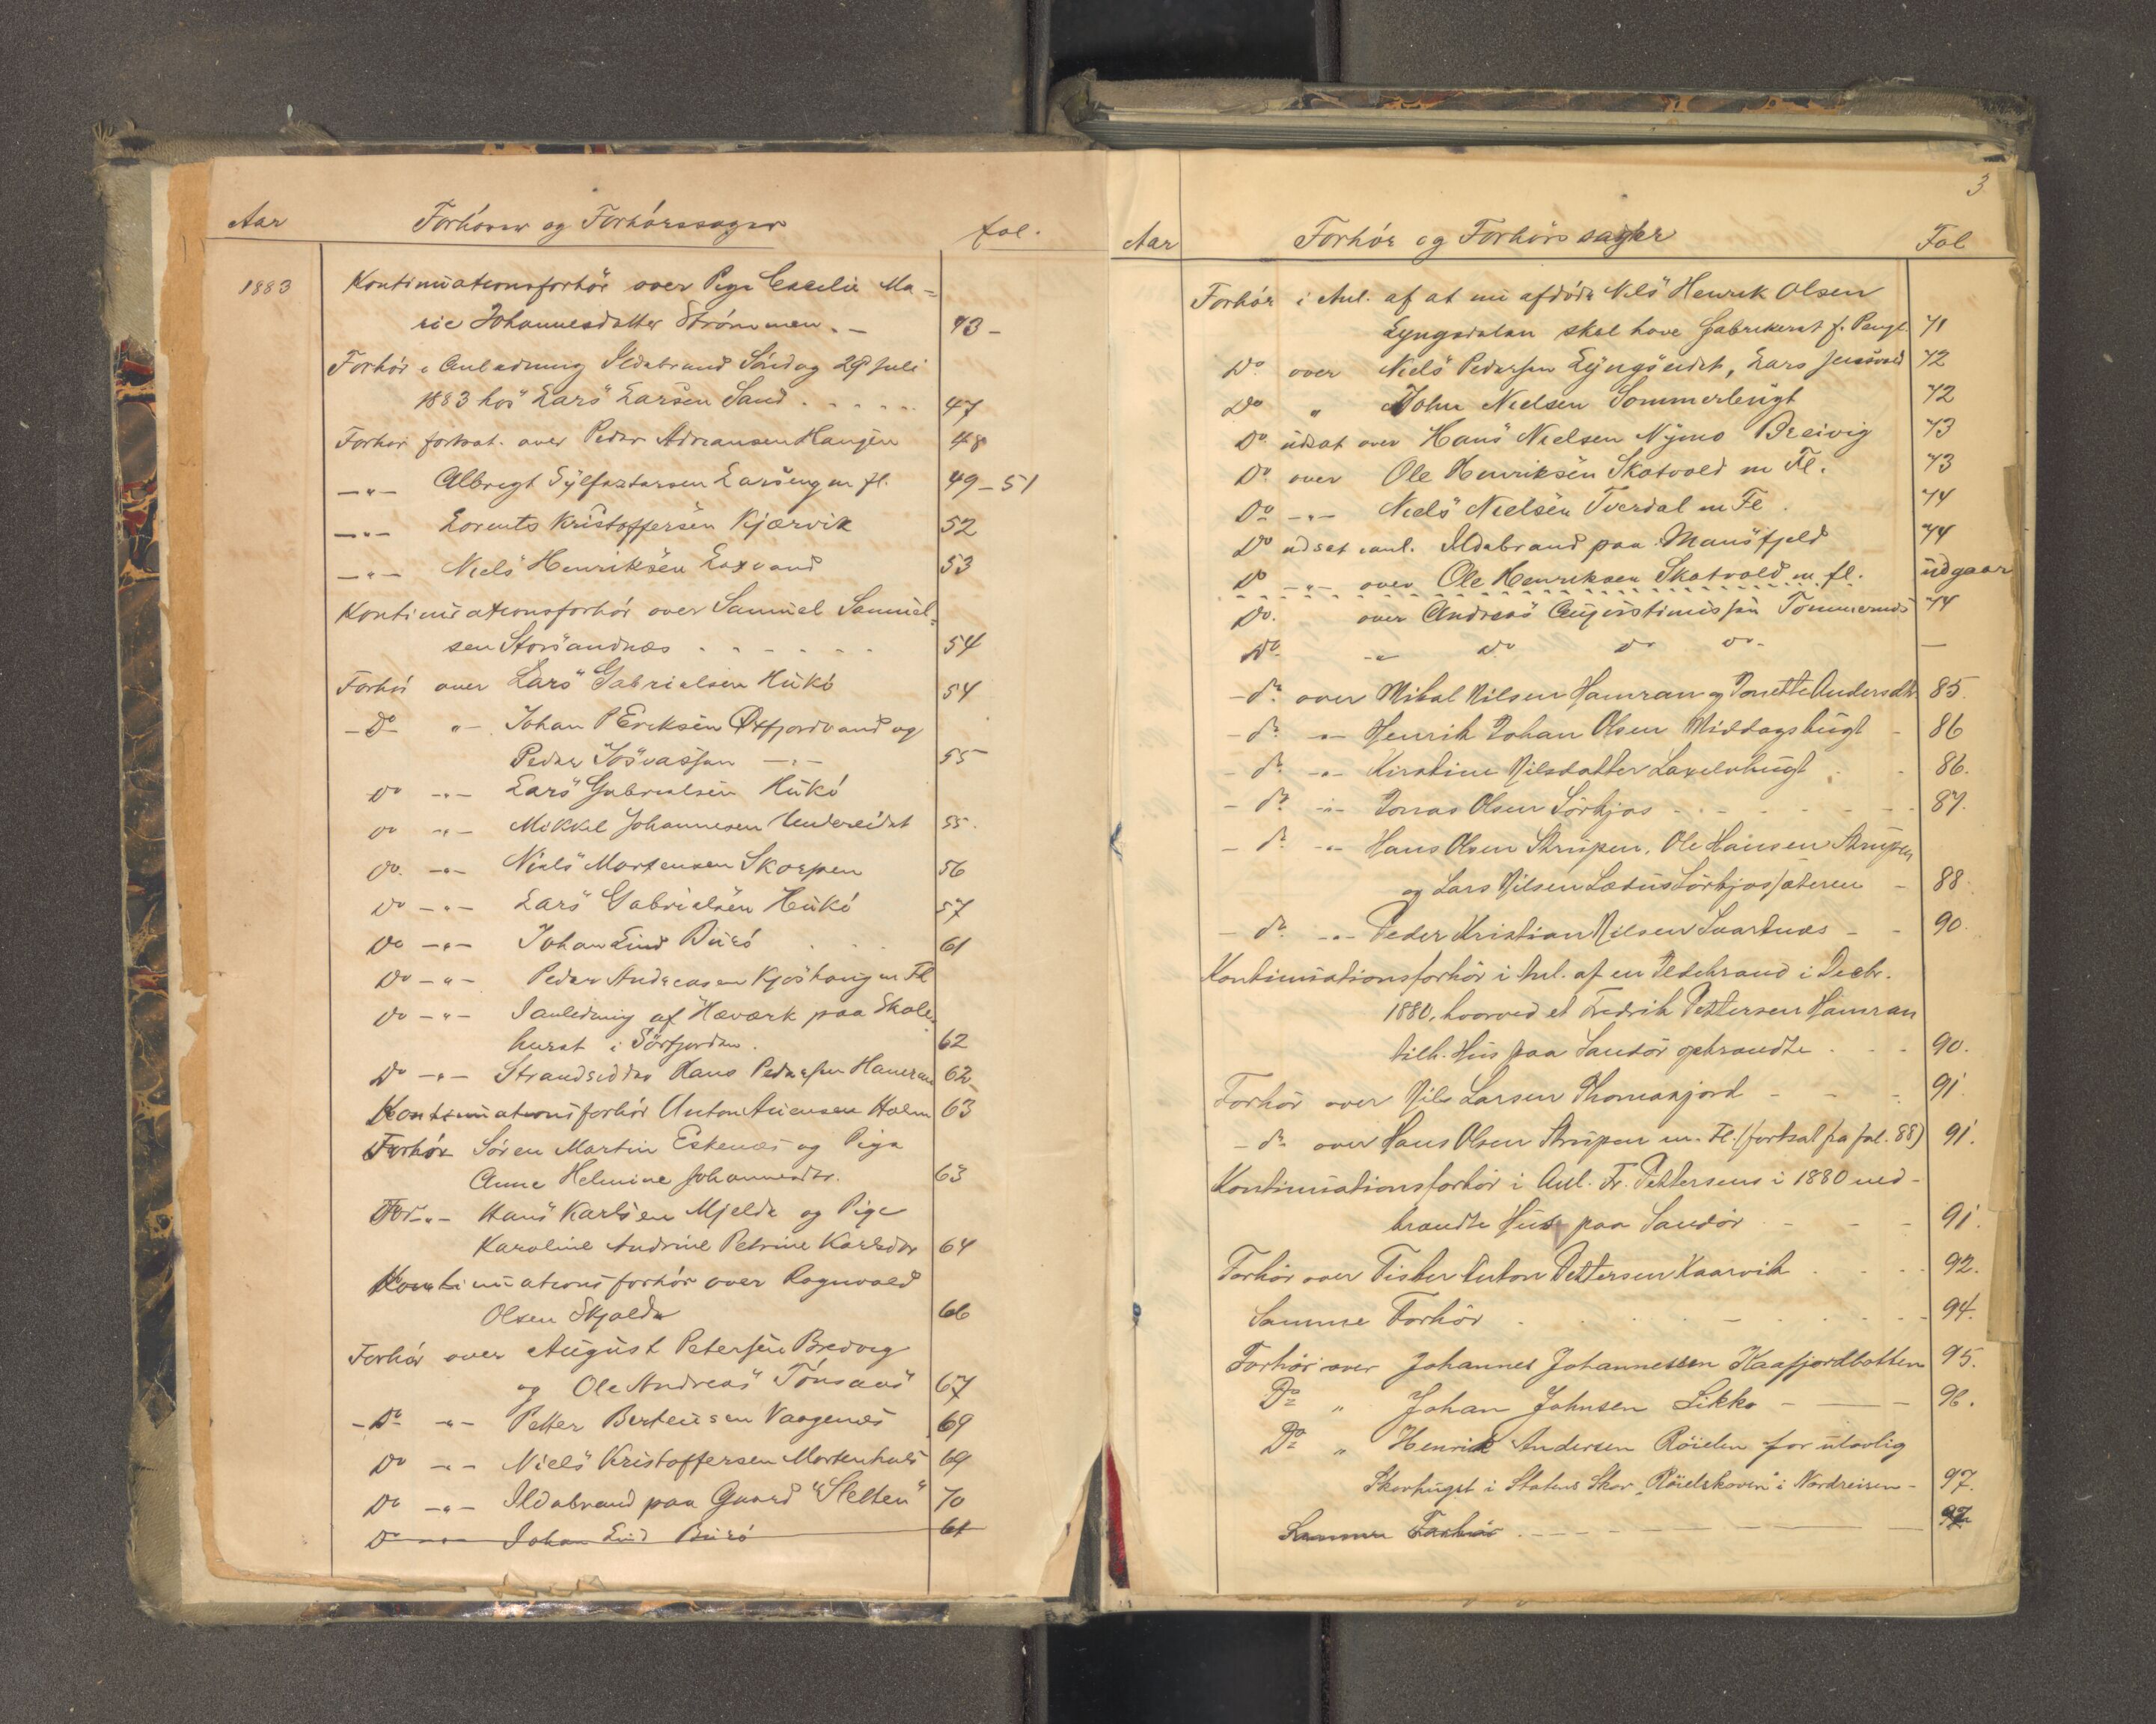 Aar Forhörer og Forhörssager fol.
1883 Kontinuationsforhör over Pige Cecelie Ma-
rie Johannesdatter Strömmen. - 43 -
Forhör i Anledning Ildebrand Söndag 29 Juli
1883 hos Lars Larsen Sand . . . . . . 47
Forhör fortsat. over Peder Adriansen Haugen 48
— " — Albregt Sylfestersen Larseng m fl. 49 - 51
— " — Lorents Kristoffersen Kjærvik 52
— " — Niels Henriksen Laxvand 53
Kontinuationsforhör over Samuel Samuel-
sen Storsandnæs . . . . . . 54
Forhör over Lars Gabrielsen Hükö 54
- Do " - Johan P Eriksen Oxfjordvand og
Peder Josvassen — " — 55
Do - " - Lars Gabrielsen Hükö
Do - " - Mikkel Johannesen Undereidet 55.
Do. - " - Niels Mortensen Skorpen 56
Do - " - Lars Gabrielsen Hükö 57
Do - " - Johan Lind Burö . . . 61
Do - " - Peder Andreasen Kjoshaug m Fl
Do - " - I anledning af Hæværk paa Skole-
huset i Sörfjorden . 62
Do - " - Strandsidder Hans Pedersen Hamran 62
Kontinuationsforhör Anton Holm 63
Forhör Sören Martin Eskenæs og Pige
Anne Helmine Johannesdtr. 63
For - " - Hans Karlsen Mjelde og Pige
Karoline Andrine Petrine Karlsdtr 64
Kontinuationsforhör over Ragnvald
Olsen Skjelde 66
Forhör over August Petersen Bredvig
og Ole Andreas Tönsaas 67
- Do - " - Petter Berteusen Vaagenes 69
Do - " - Niels Kristoffersen Mortenhals 69
Do - " - Ildebrand paa Gaard "Sletten" 70
Do - " - Johan Lind Burö 61
3
Aar Forhör og Forhörssager Fol
Forhör i Anl. af at nu afdöde Nils Henrik Olsen
Lyngsdalen skal have fabrikeret f. Penge. 71
Do over Niels Pedersen Lyngseidet, Lars 72
Do " John Nielsen Sommerbugt 72
Do udsat over Hans Nielsen Nymo Breivig 73
Do over Ole Henriksen Skatvold m Fl. 73
Do - " - Niels Nielsen Tverdal m Fl . 74
Do udsat i anl. Ildebrand paa Mausfjeld 74
Do - " - over Ole Henriksen Skatvold m fl. udgaar
Do. over Andreas Augustinussen Tommernes 74
Do. - " - Do Do Do. —
- do over Mikal Nilsen Hamran og Jonette Andersdtr 85.
- do - " - Henrik Johan Olsen Middagsbugt - 86
- do - " - Kirstine Nilsdatter Laxelvbugt . - 86.
- do - " - Jonas Olsen Sörkjos - - - - - - 87.
- do - " - Hans Olsen Strupen, Ole Hansen Strupen
og Lars Nilsen Lætus Sörkjossæteren - 88.
- do - " - Peder Kristian Nilsen Svartnæs - - 90.
Kontinuationsforhör i Anl. af en Ildebrand i Decbr.
1880, hvorved et Fredrik Pettersen Hamran
tilh. Hus paa Sandör opbrændte . - - 90.
Forhör over Nils Larsen Thomasjord - - - 91.
- do over Hans Olsen Strupen m. Fl. (fortsat fra fol. 88) 91.
Kontinuationsforhör i Anl. Fr. Pettersens i 1880 ned-
brændte Hus paa Sandör - - - 91.
Forhör over Fisker Anton Pettersen Kaarvik . . . 92.
Samme Forhör . . . . - . . . . 94.
Forhör over Johannes Johannessen Kaafjordbotten 95.
Do " Johan Johnsen Likko - — - 96.
Do " Henrik Andersen Röielen for ulovlig
Skovhugst i Statens Skov "Röielskoven" i Nordreisen - 97.
Samme Forhör . - - - - — 97